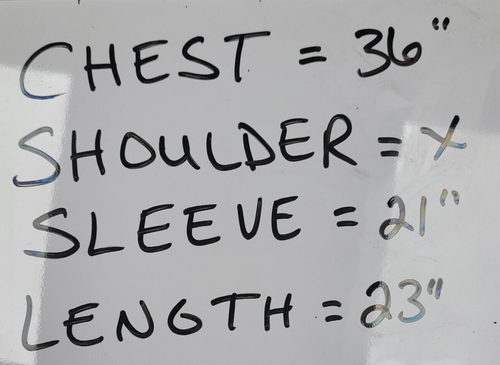 CHEST = 36"
SHOULDER = X
SLEEVE = 21"
LENGTH = 23"